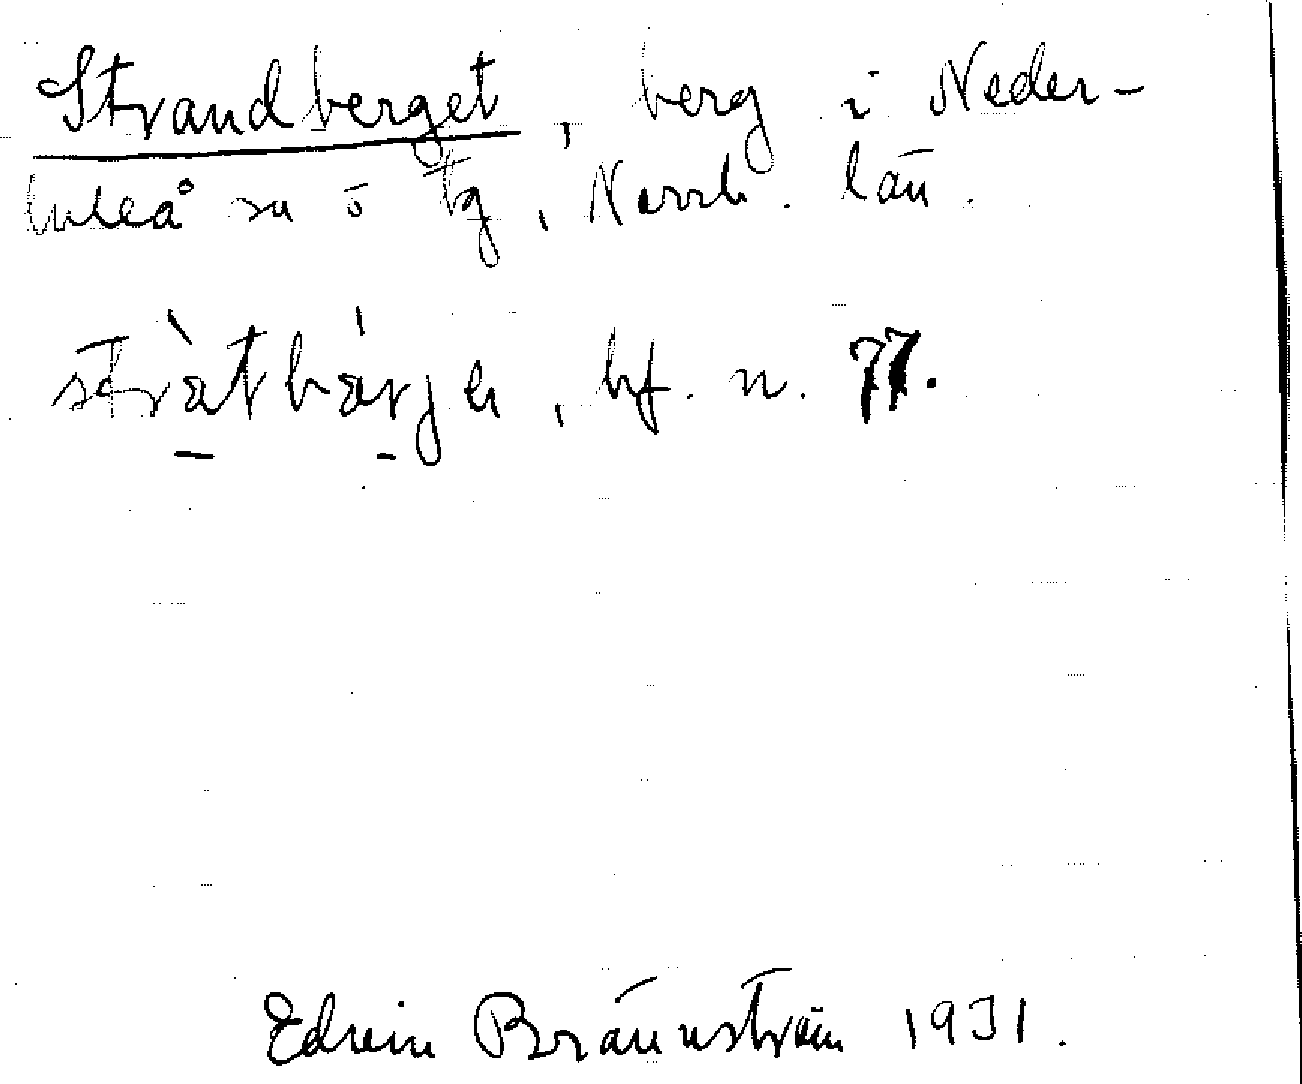 Strandberget, berg i Neder-
luleå sn ö tg, Norrb. län.
stràtbárjə, bf. n. 77.
Edvin Brännström 1931.